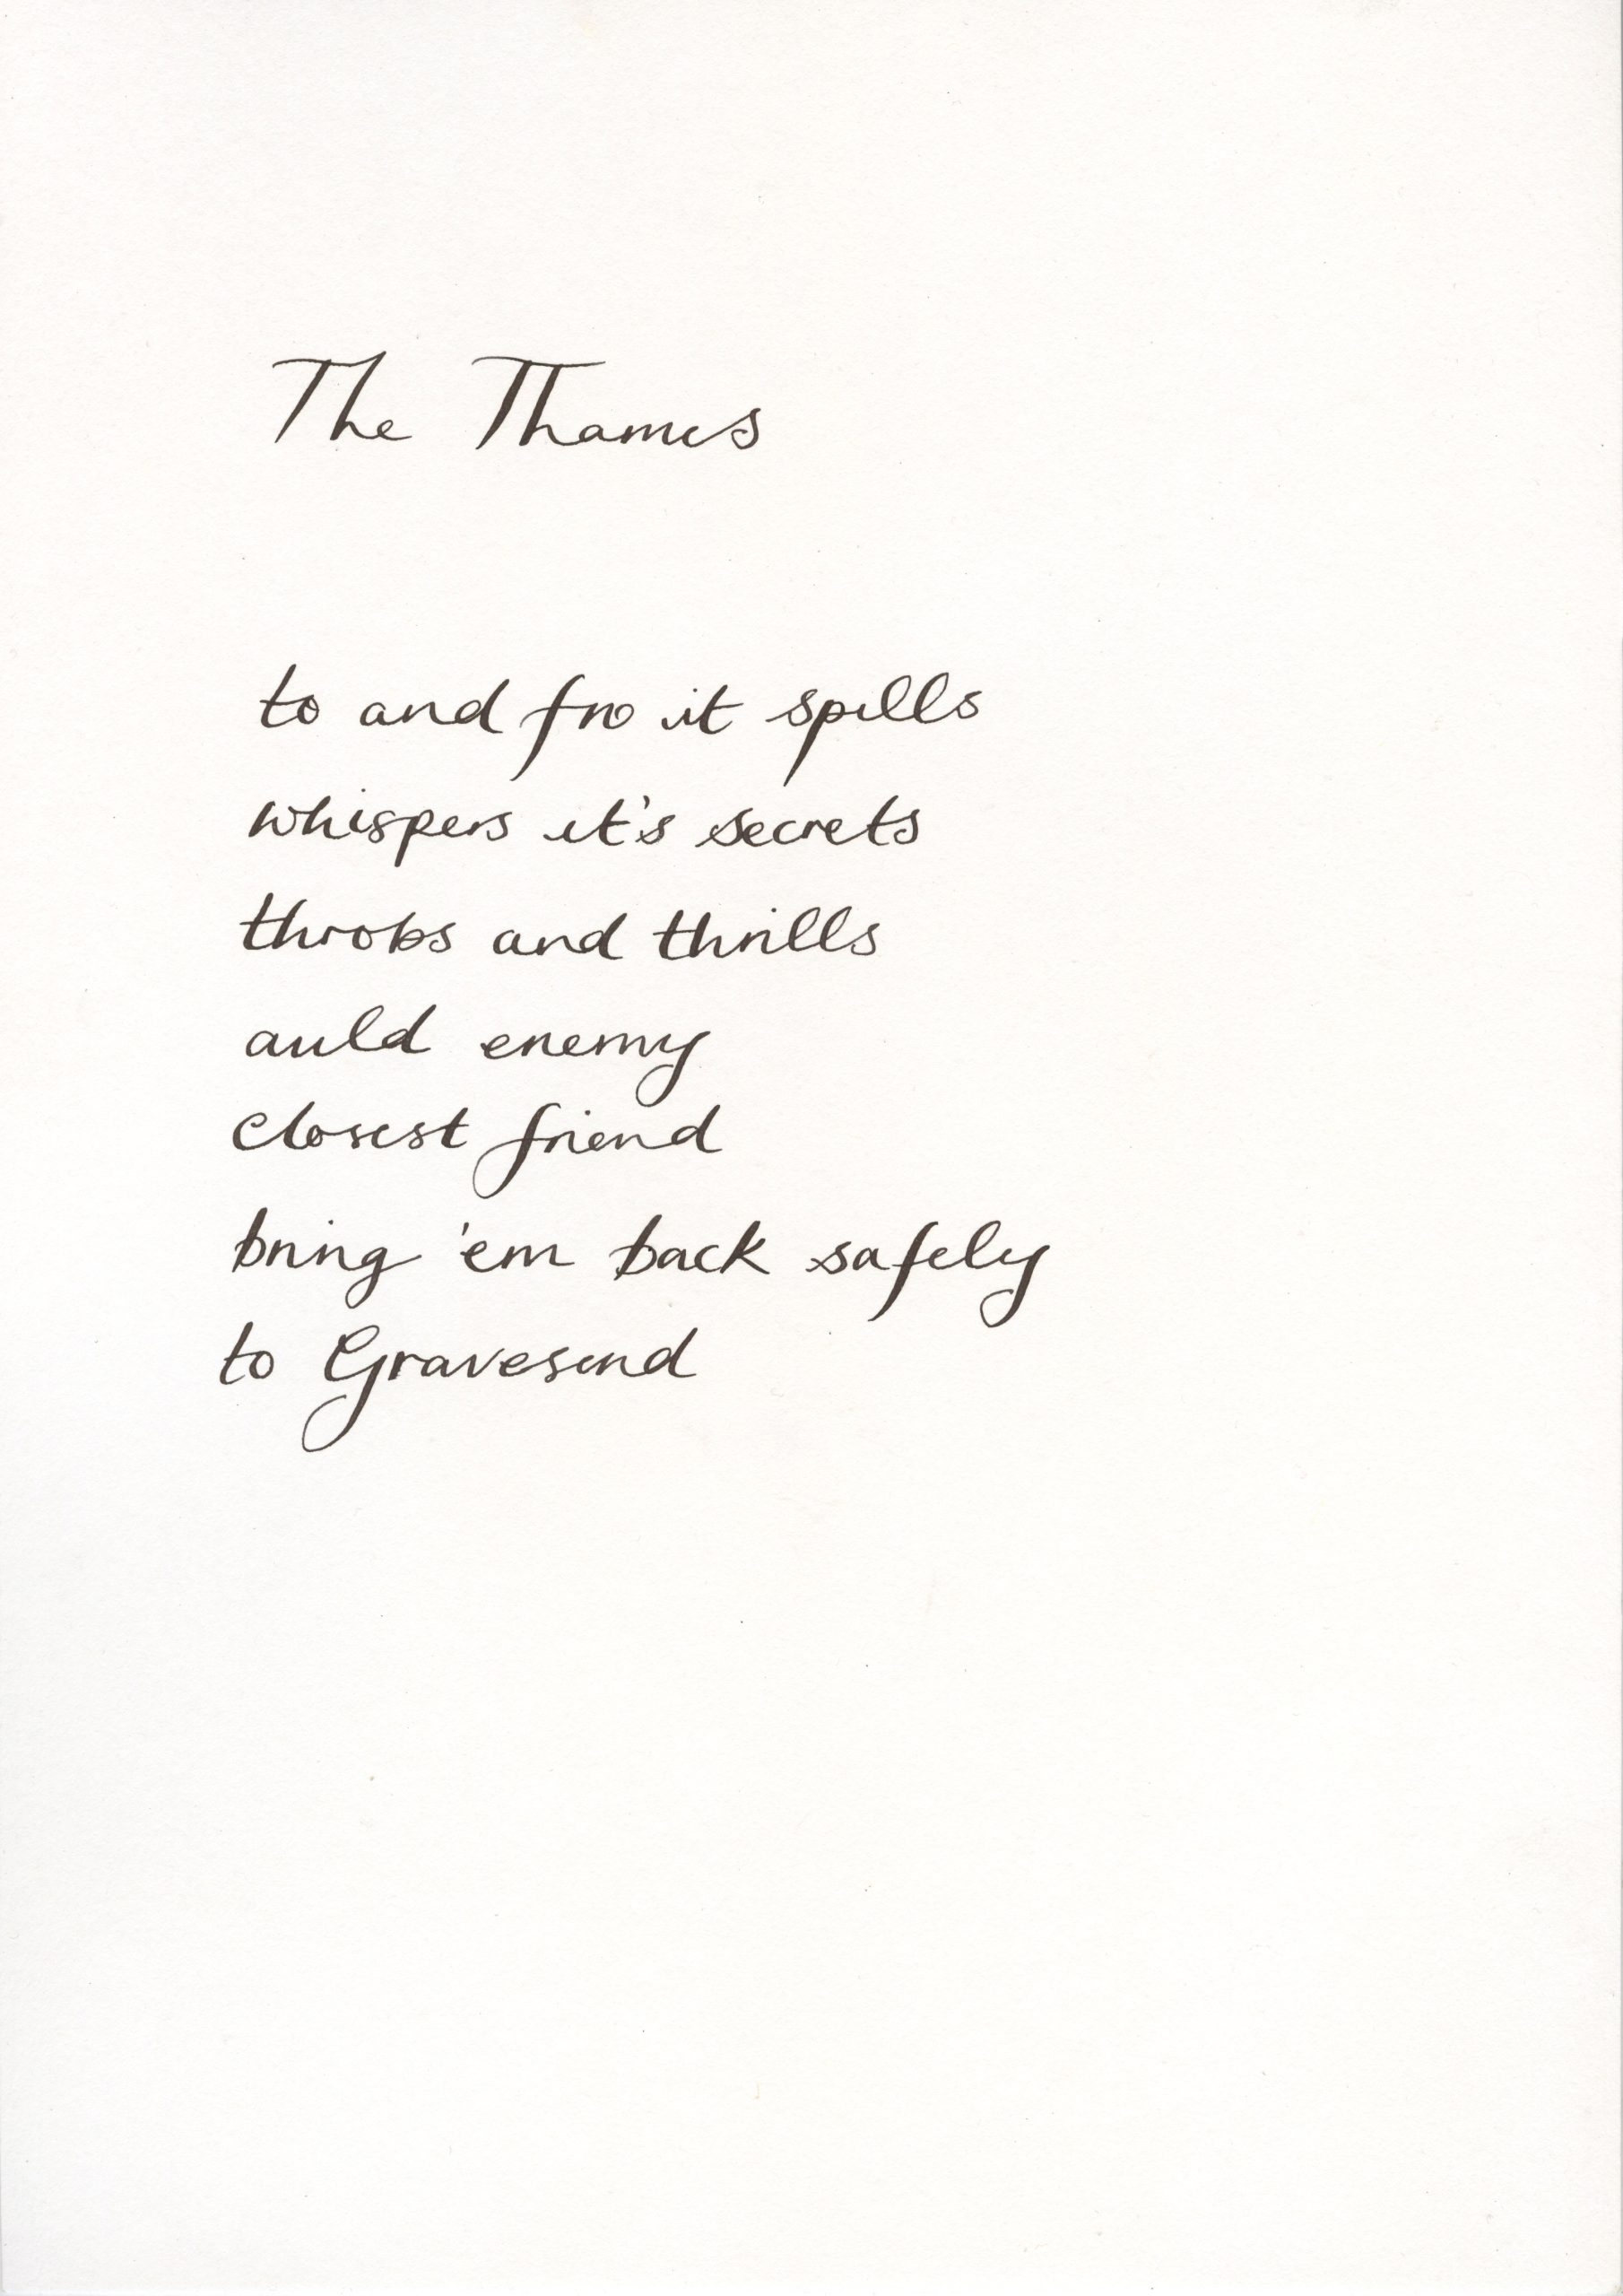 The Thames
to and fro it spills
whispers it's secrets
throbs and thrills
auld enemy
closest friend
bring 'em back safely
to Gravesend